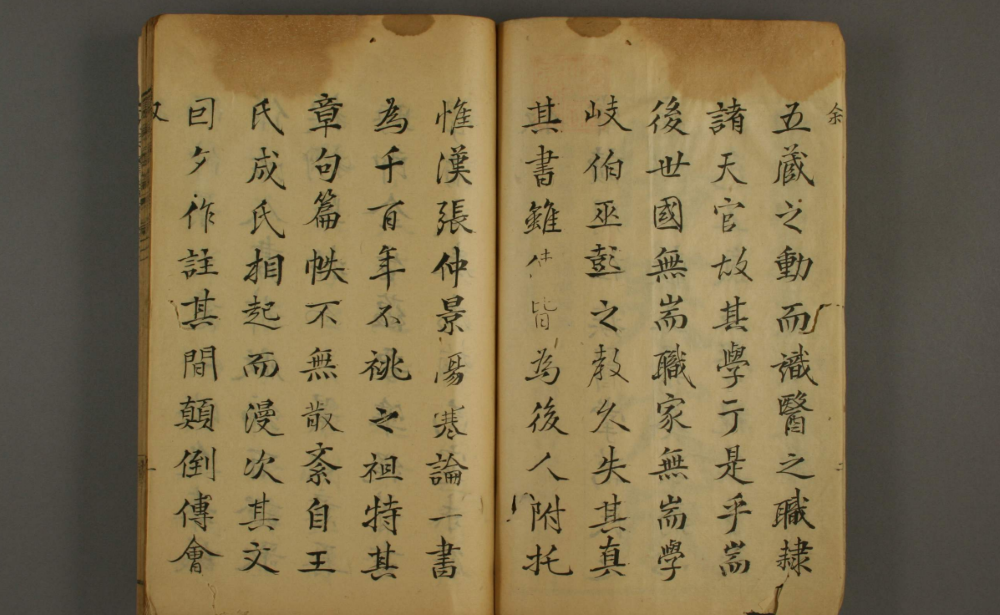 五蔵之動而識醫之職隸
諸天官故其學亍是乎耑
後世國無耑職家無耑學
岐伯巫彭之教久失其真
其書雖 皆為後人附托
惟漢張仲景傷寒論一書
為千百年不祧之祖特其
章句篇帙不無散紊自王
氏成氏相起而漫次其文
囙夕作註其間顛倒傅會
余